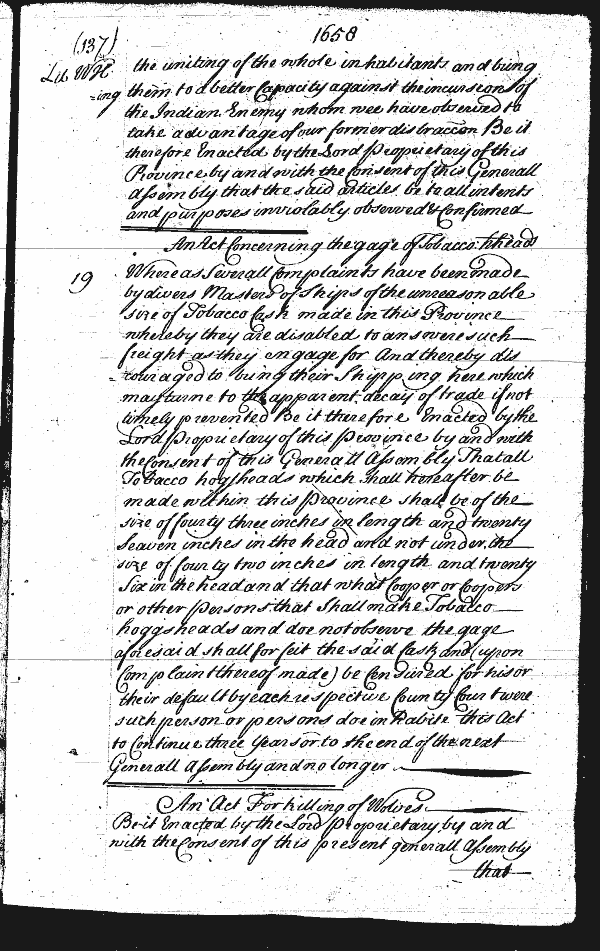 1658
(137)
Lib WH
the uniting of the whole inhabitants and bring
=ing them to a better Capacity against the incursions of
the Indian Enemy whom wee have observed to
take advantage of our former distraccon Be it
therefore Enacted by the Lord Proprietary of this
Province by and with the Consent of this Generall
Assembly that the said articles be to all intents
and purposes inviolably observed & Confirmed
An Act Concerning the gage of Tobacco hheads
19
Whereas Severall Complaints have been made
by divers Masters of Ships of the unreasonable
size of Tobacco Cask made in this Province
whereby they are disabled to answere such
freight as they engage for And thereby dis
=couraged to bring their Shipping here which
may turne to the apparent decay of trade if not
timely prevented Be it therefore Enacted by the
Lord Proprietary of this Province by and with
the Consent of this Generall Assembly That all
Tobacco hogsheads which shall hereafter be
made within this Province shall be of the
size of fourty three inches in length and twenty
Seaven inches in the head and not under the
size of fourty two inches in length and twenty
Six in the head and that what Cooper or Coopers
or other Persons that Shall make Tobacco
hoggsheads and doe not observe the gage
aforesaid shall forfeit the said Cask and (upon
Complaint thereof made) be Censured for his or
their default by each respective County Court were
such person or persons doe inhabite This Act
to Continue three Years or to the end of the next
Generall Assembly and no longer
An Act For killing of Wolves
Be it Enacted by the Lord Proprietary by and
with the Consent of this present generall Assembly
that